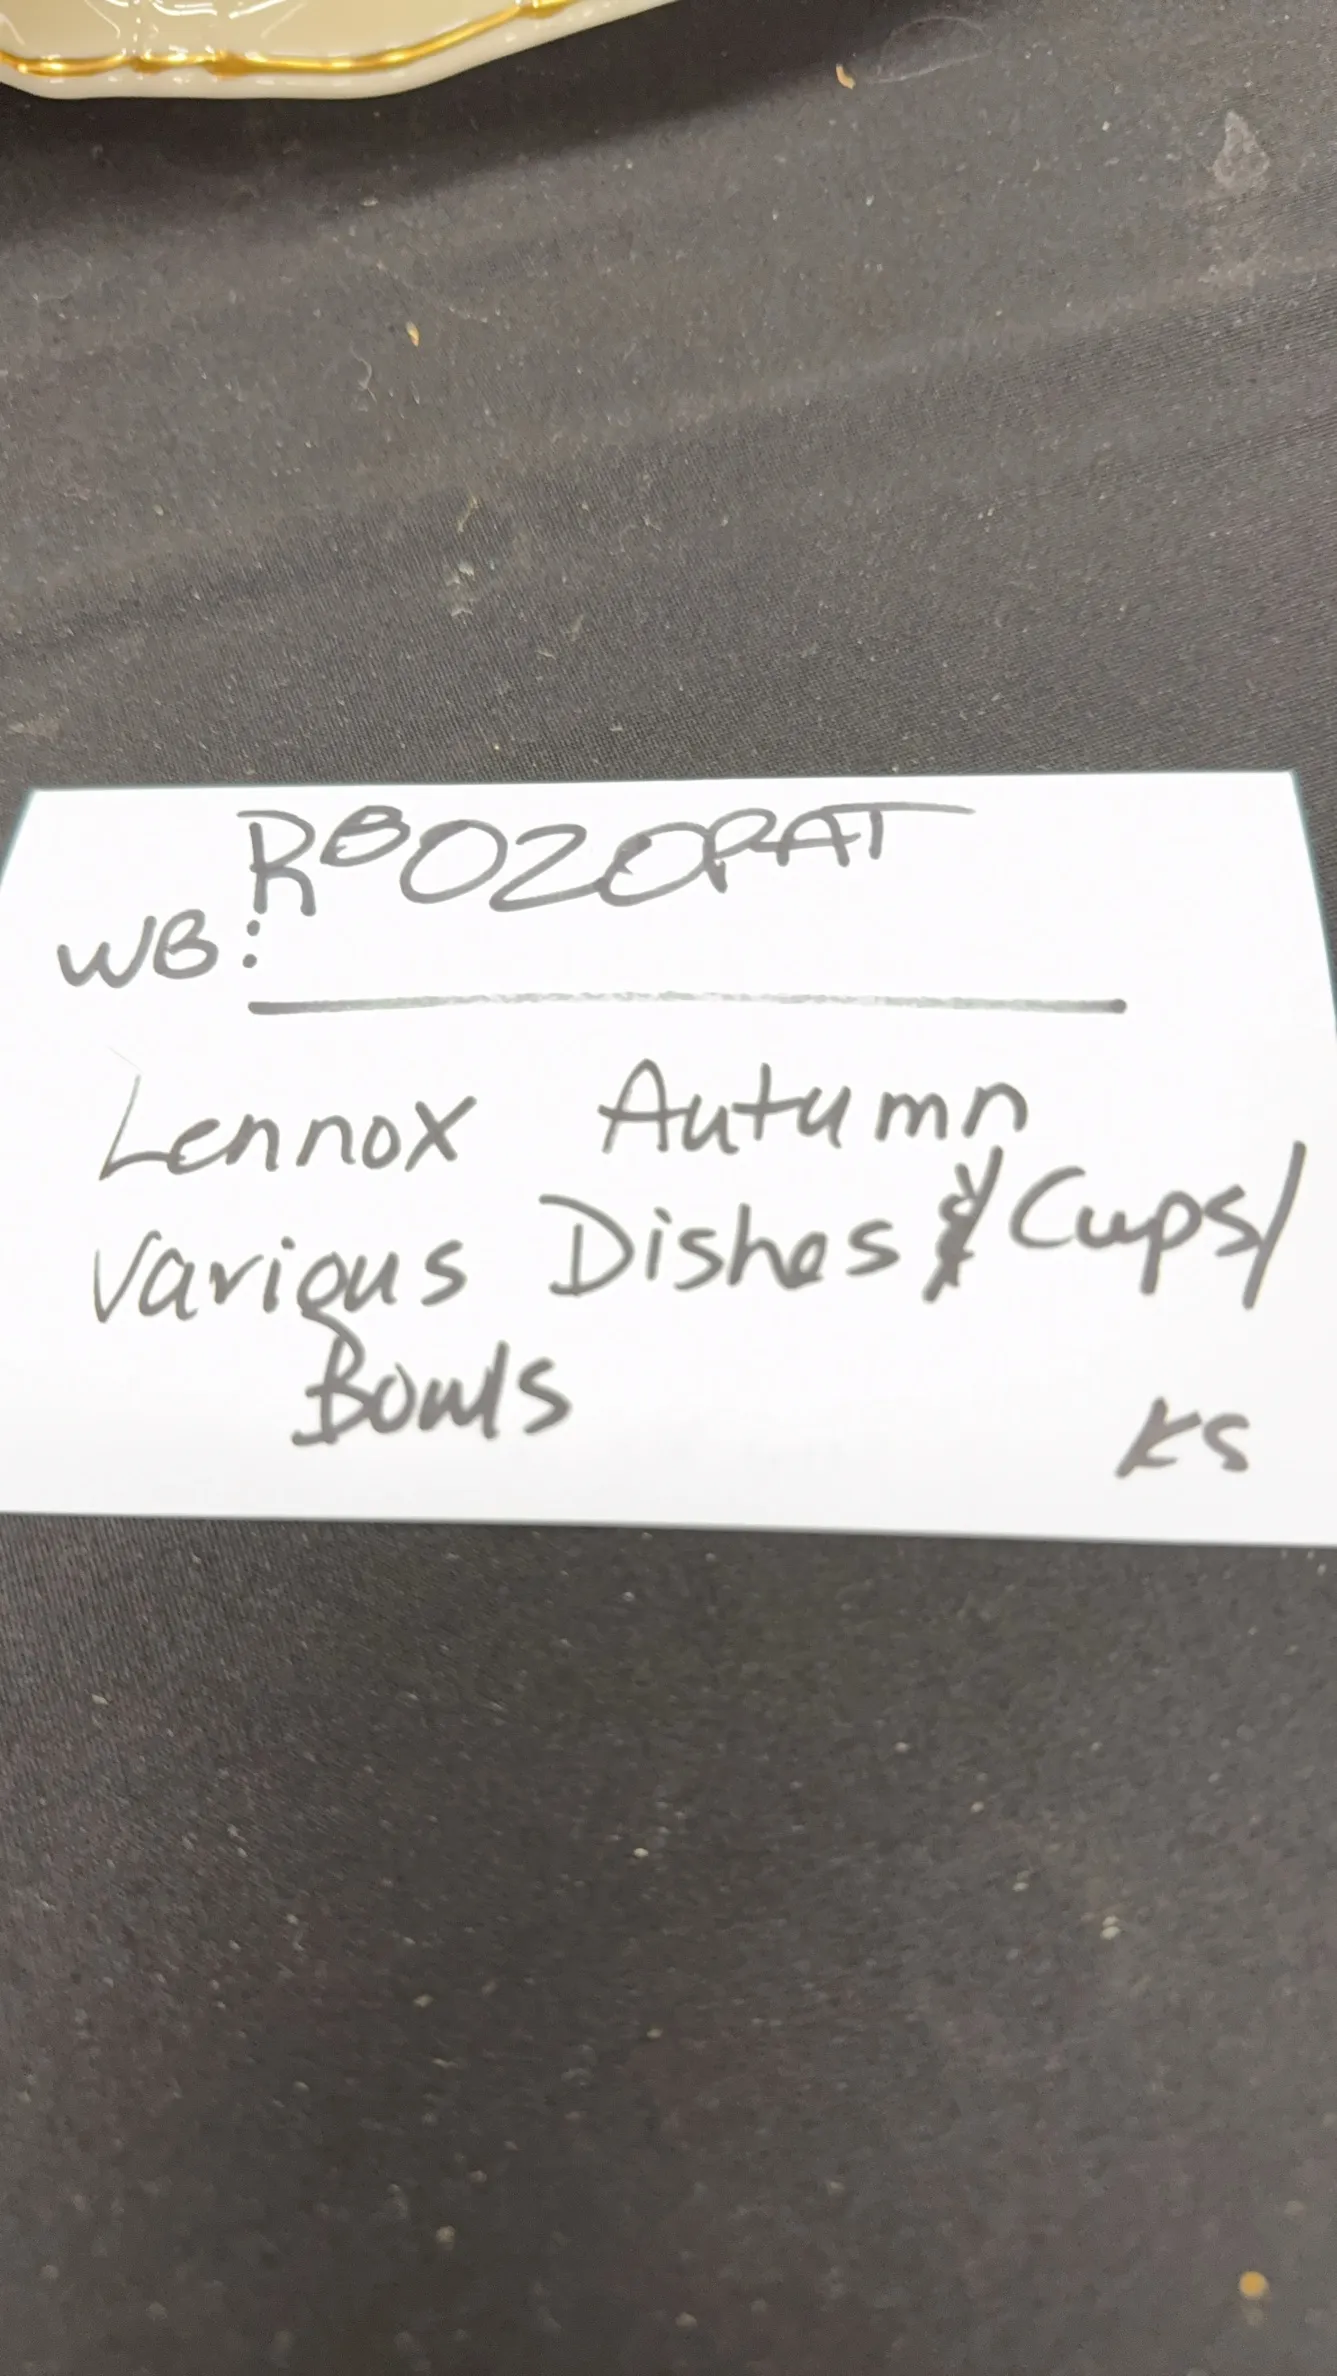 RBOZORAT
WB:
Lennox Autumn
Various Dishes & Cups/
Bowls
KS